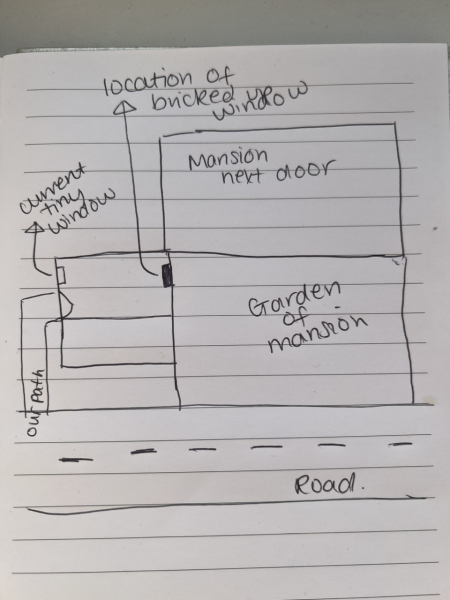 location of
bricked
window
Mansion
next door
current
tiny
window
Garden
of
mansion
our path
Road.